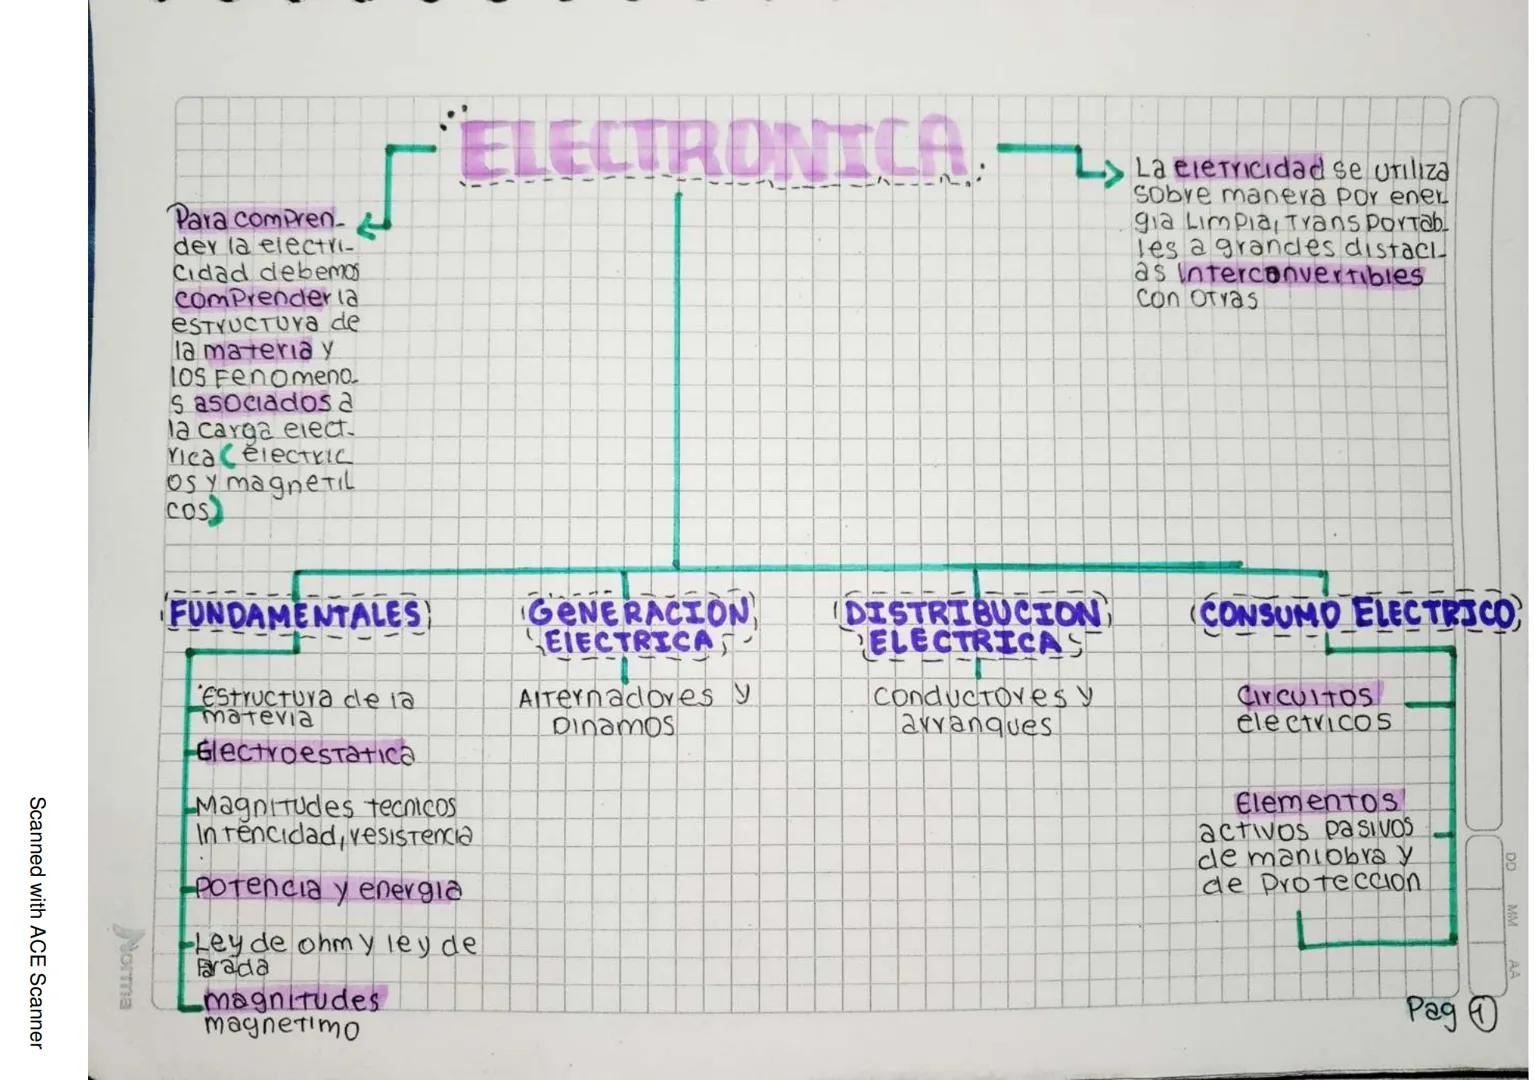 ELECTRONICA
Para compren-
der la electri-
cidad debemos
comprender la
estructura de
la materia y
los Fenomeno-
s asociados a
la carga elect-
rica (electric
os y magnetil
cos)
La eletricidad se utiliza
sobre manera por ener-
gia Limpia, transportab-
les a grandes distaci-
as interconvertibles
con otras
FUNDAMENTALES
Estructura de la
materia
Electroestatica
Magnitudes tecnicos
Intencidad, resistencia
Potencia y energia
Ley de ohm y ley de
magnitudes
magnetimo
GENERACION
ElECTRICA
Alternadores y
Dinamos
DISTRIBUCION
ELECTRICA
conductores y
arranques
CONSUMO ELECTRICO
Circuitos
electricos
Elementos
activos pasivos
de maniobra y
de Proteccion
Pag 1
DD MM AA
Norma
Scanned with ACE Scanner